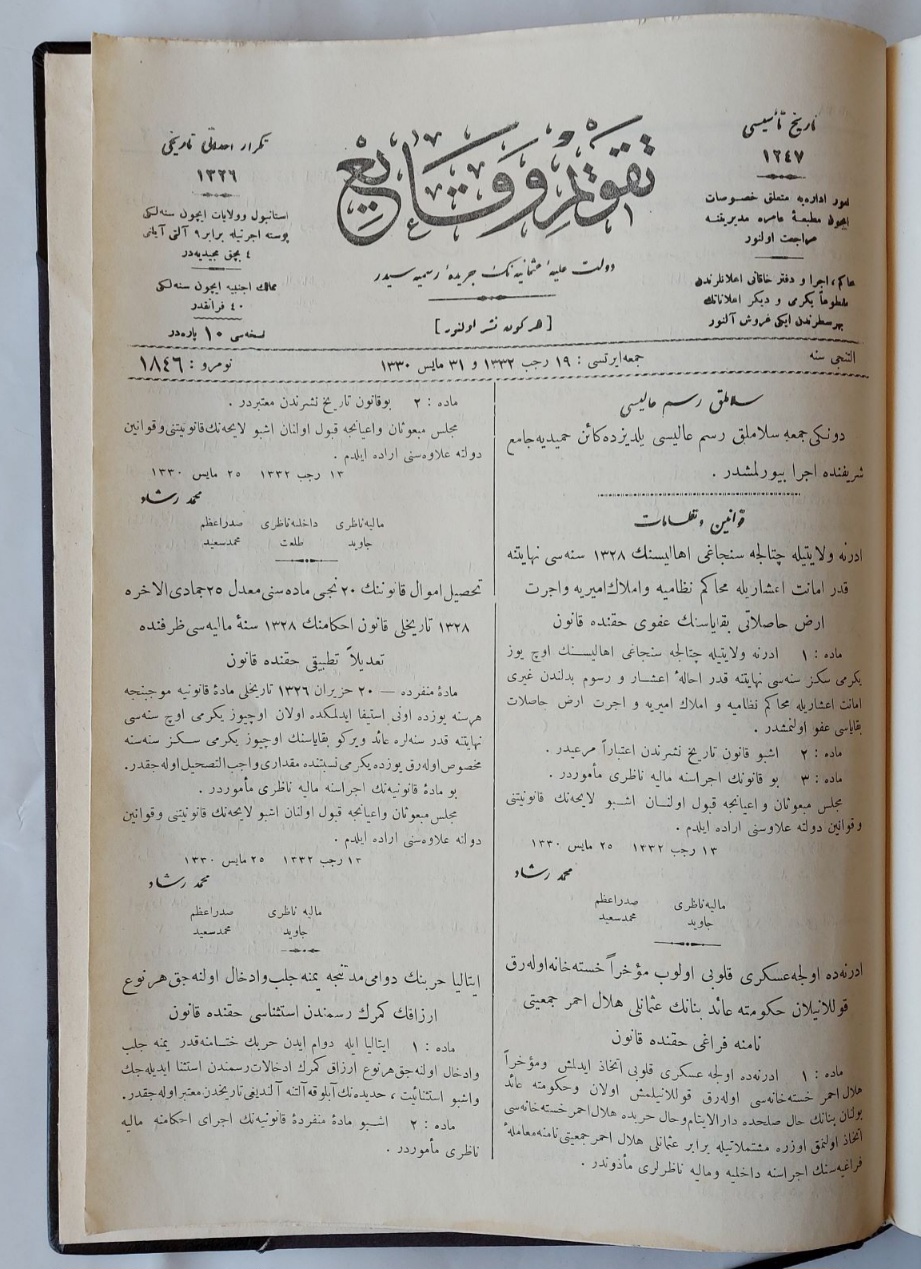 تاریخ تأسیسی
١٢٤٧
امور اداره‌یه متعلق خصوصات
ایچون مطبعهٔ عامره مدیریتنه
مراجعت اولنور
محاکم، اجرا و دفتر خاقانی اعلانلرندن
مقطوعاً یکرمی و دیکر اعلاناتك
بهر سطرندن ایکی غروش آلنور
تقویم وقایع
دولت علیهٔ عثمانیه‌نك جریدهٔ رسمیه سیدر
[هرکون نشر اولنور]
تکرار احداثی تاریخی
١٣٢٦
استانبول وولایات ایچون سنه‌لکی
پوسته اجرتیله برابر ٩ آلتی آیلغی
٤ بچق مجیدیه‌در
ممالك اجنبیه ایچون سنه‌لکی
٤٠ فرانقدر
نسخه‌سی ١٠ پاره‌در
التنجی سنه
جمعه ایرتسی : ١٩ رجب ١٣٣٢ و ٣١ مایس ١٣٣٠
نومرو : ١٨٤٦
سلاملق رسم عالیسی
دونکی جمعه سلاملق رسم عالیسی یلدیزده کائن حمیدیه جامع
شریفنده اجرا بیورلمشدر .
قوانین و نظامات
ادرنه ولایتیله چتالجه سنجاغی اهالیسنك ١٣٢٨ سنه‌سی نهایتنه
قدر امانت اعشاریله محاکم نظامیه واملاك امیریه واجرت
ارض حاصلاتی بقایاسنك عفوی حقنده قانون
ماده : ١ ادرنه ولایتیله چتالجه سنجاغی اهالیسنك اوچ یوز
یکرمی سکز سنه‌سی نهایتنه قدر احالهٔ اعشار و رسوم بدلندن غیری
امانت اعشاریله محاکم نظامیه و املاك امیریه و اجرت ارض حاصلات
بقایاسی عفو اولنمشدر .
ماده : ٢ اشبو قانون تاریخ نشرندن اعتباراً مرعیدر .
ماده : ٣ بو قانونك اجراسنه مالیه ناظری مأموردر .
مجلس مبعوثان و اعیانجه قبول اولنان اشبو لایحه‌نك قانونیتنی
وقوانین دولته علاوه‌سنی اراده ایلدم .
١٣ رجب ١٣٣٢ ٢٥ مایس ١٣٣٠
محمد رشاد
صدراعظم مالیه ناظری
محمدسعید جاوید
ادرنه‌ده اولجه عسکری قلوبی اولوب مؤخراً خسته‌خانه اوله‌رق
قوللانیلان حکومته عائد بنانك عثمانلی هلال احمر جمعیتی
نامنه فراغی حقنده قانون
ماده : ١ ادرنه‌ده اولجه عسکری قلوبی اتخاذ ایدلمش ومؤخراً
هلال احمر خسته‌خانه‌سی اوله‌رق قوللانیلمش اولان وحکومته عائد
بولنان بنانك حال صلحده دارالایتام وحال حربده هلال احمر خسته‌خانه‌سی
اتخاذ اولنمق اوزره مشتملاتیله برابر عثمانلی هلال احمر جمعیتی نامنه معاملهٔ
فراغیه‌سنك اجراسنه داخلیه ومالیه ناظرلری مأذوندر .
ماده : ٢ بوقانون تاریخ نشرندن معتبردر .
مجلس مبعوثان واعیانجه قبول اولنان اشبو لایحه‌نك قانونیتنی وقوانین
دولته علاوه‌سنی اراده ایلدم .
١٣ رجب ١٣٣٢ ٢٥ مایس ١٣٣٠
محمد رشاد
صدراعظم داخلیه ناظری مالیه ناظری
محمدسعید طلعت جاوید
تحصیل اموال قانوننك ٢٠ نجی ماده‌سنی معدل ٢٥ جمادی الاخره
١٣٢٨ تاریخلی قانون احکامنك ١٣٢٨ سنهٔ مالیه‌سی ظرفنده
تعدیلاً تطبیقی حقنده قانون
مادهٔ منفرده — ٢٠ حزیران ١٣٢٦ تاریخلی مادهٔ قانونیه موجبنجه
هرسنه یوزده اونی استیفا ایدلمکده اولان اوچیوز یکرمی اوچ سنه‌سی
نهایتنه قدر سنه‌لره عائد ویرکو بقایاسنك اوچیوز یکرمی سکز سنه‌سنه
مخصوص اوله‌رق یوزده یکرمی نسبتنده مقداری واجب التحصیل اوله‌جقدر.
بو مادهٔ قانونیه‌نك اجراسنه مالیه ناظری مأموردر .
مجلس مبعوثان واعیانجه قبول اولنان اشبو لایحه‌نك قانونیتنی وقوانین
دولته علاوه‌سنی اراده ایلدم .
١٣ رجب ١٣٣٢ ٢٥ مایس ١٣٣٠
محمد رشاد
صدراعظم مالیه ناظری
محمدسعید جاوید
ایتالیا حربنك دوامی مدتنجه یمنه جلب وادخال اولنه‌جق هر نوع
ارزاقك کمرك رسمندن استثناسی حقنده قانون
ماده : ١ ایتالیا ایله دوام ایدن حربك ختامنه قدر یمنه جلب
وادخال اوله‌جق هر نوع ارزاق کمرك ادخالات رسمندن استثنا ایدیله‌جك
واشبو استثنائیت ، حدیده‌نك آبلوقه آلتنه آلندیغی تاریخدن معتبر اوله‌جقدر.
ماده : ٢ اشبو مادهٔ منفردهٔ قانونیه‌نك اجرای احکامنه مالیه
ناظری مأموردر .